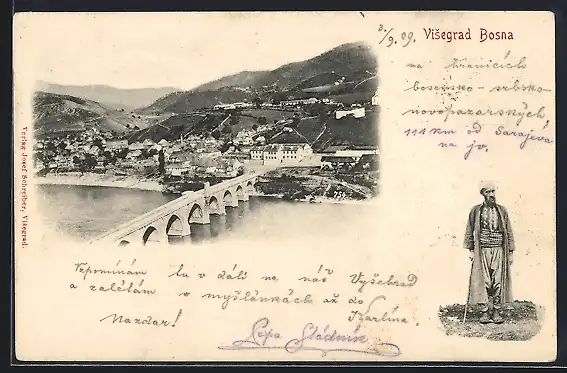 3./9. 09.
Višegrad Bosna
na hranicích
bosensko-srbsko-
novopazarských,
111 km od Sarajeva
na jv.
Verlag Josef Schreiber, Višegrad.
Vzpomínám tu v dáli na náš Vyšehrad
a zalétám v myšlénkách až do
Karlína.
Nazdar!
Pepa Sládník